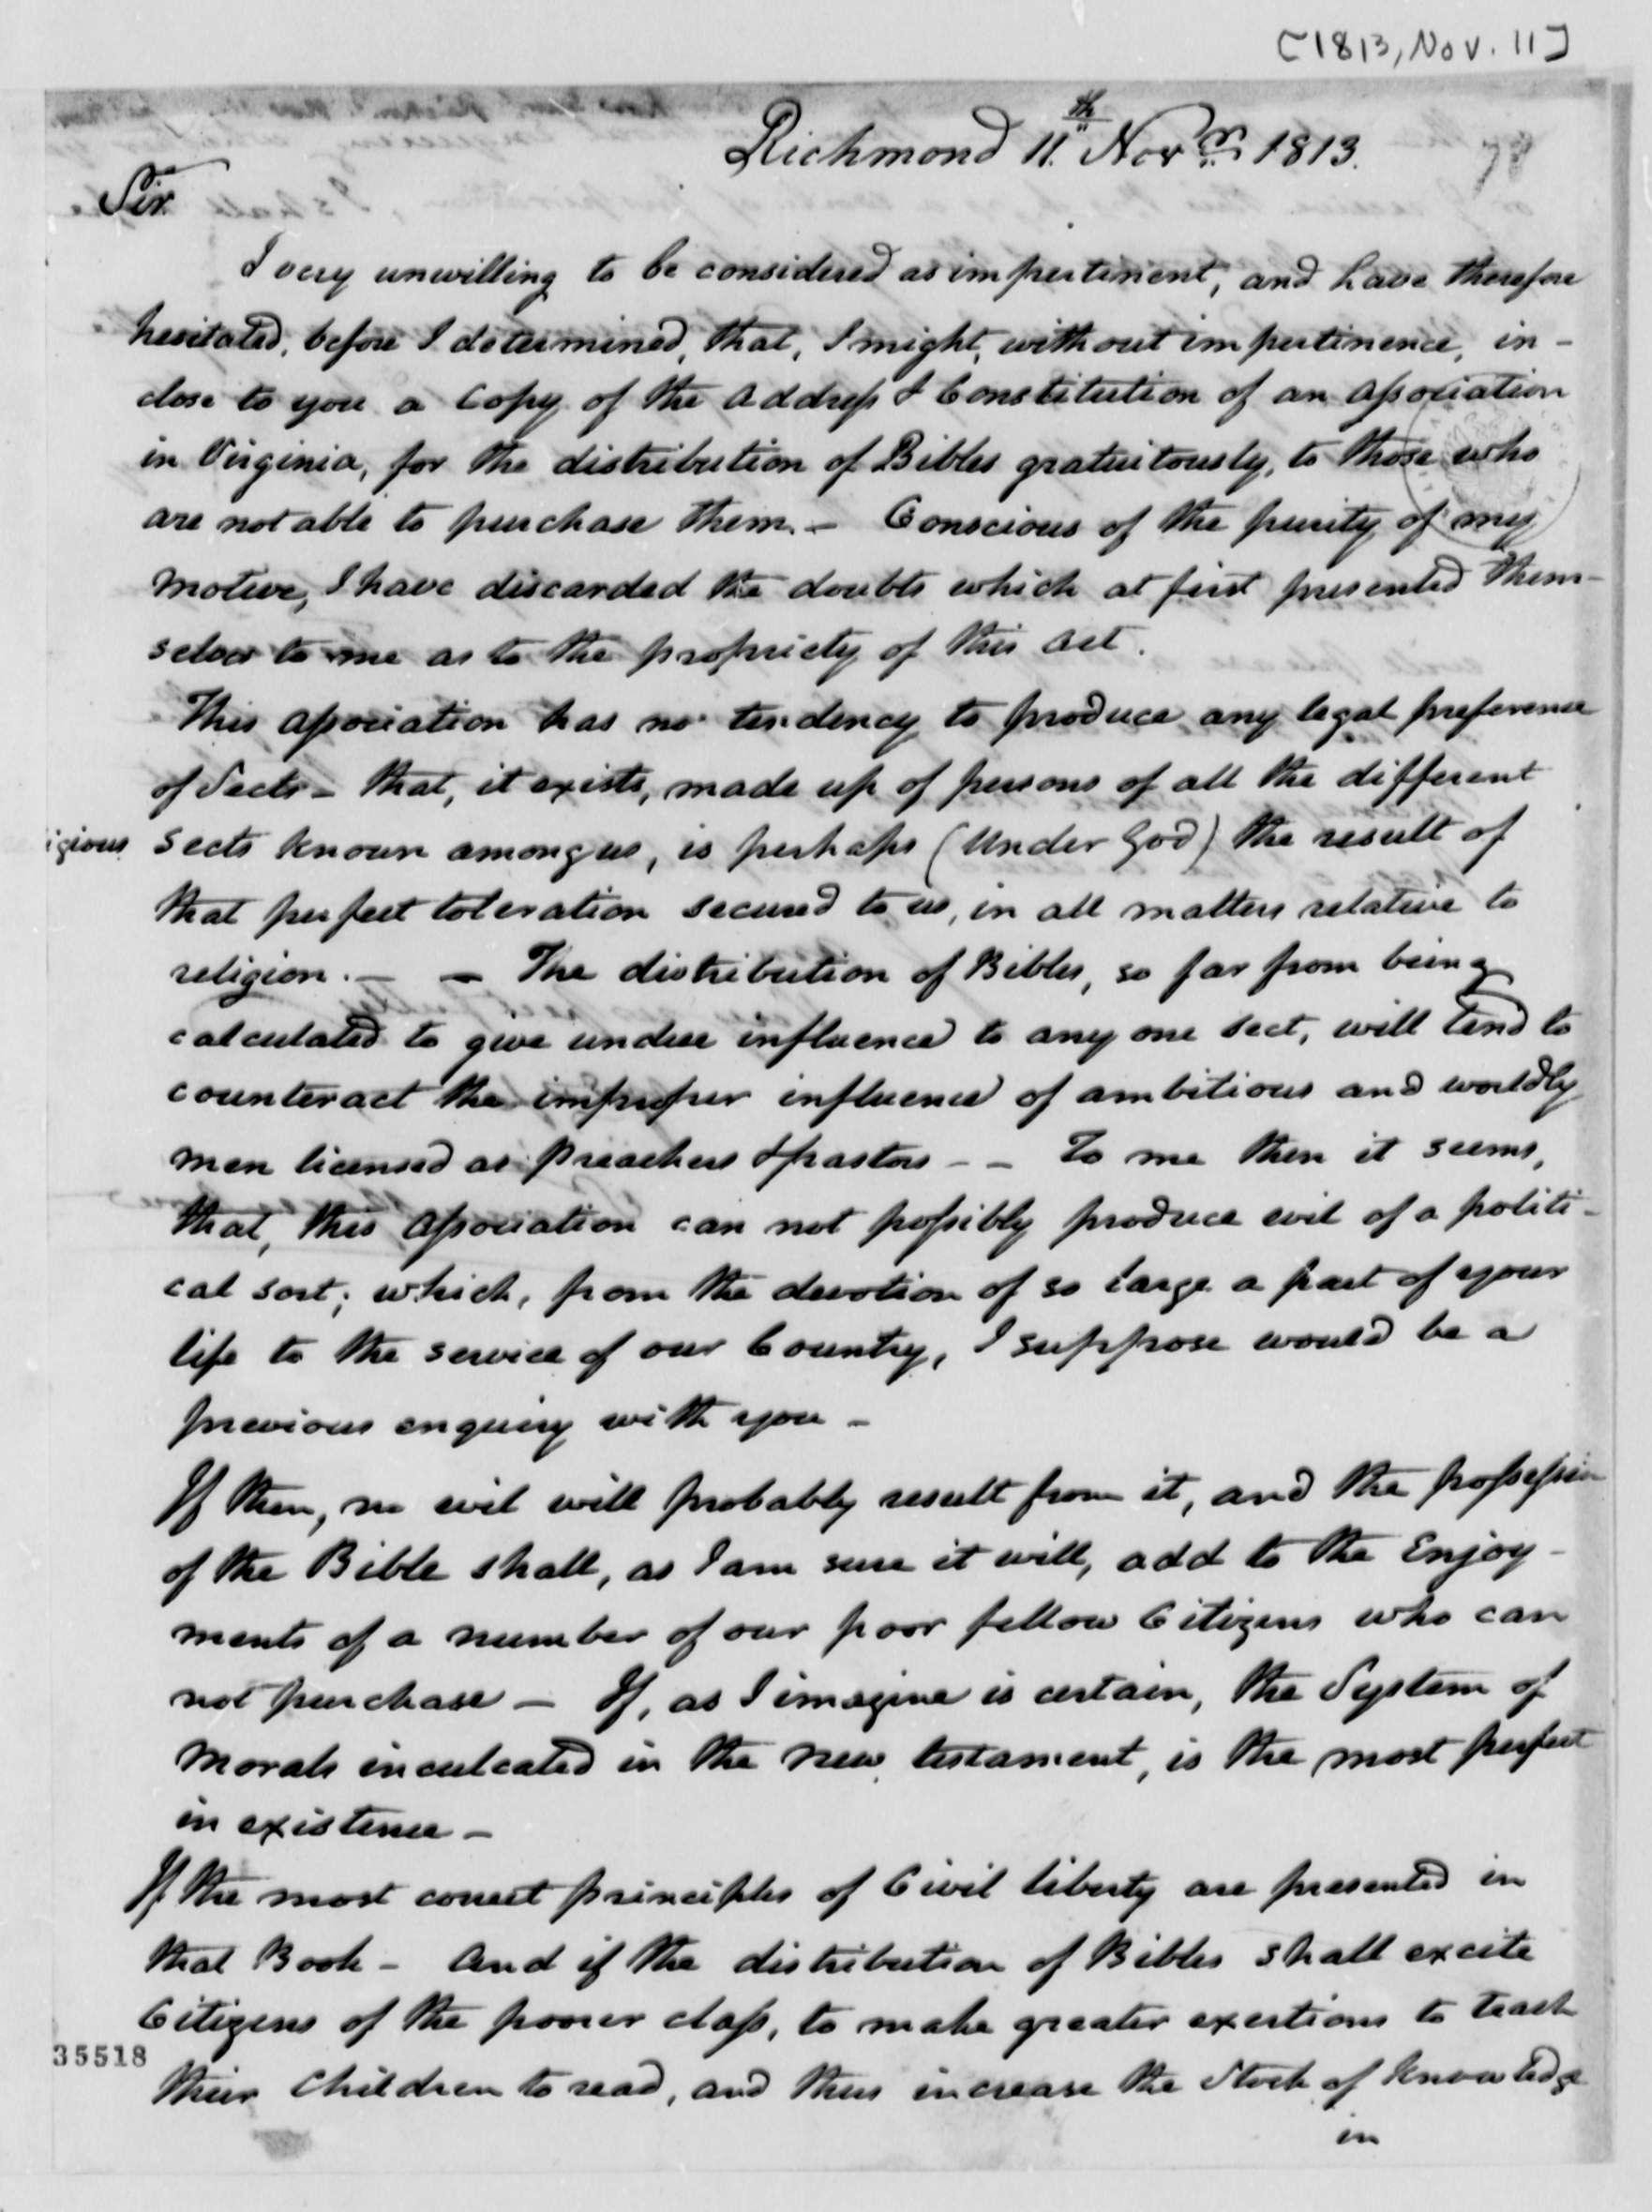 [1813, Nov. 11]
Richmond 11th Novr. 1813.
78
Sir
I very unwilling to be considered as impertinent, and have therefore
hesitated, before I determined, that, I might, without impertinence, in-
close to you a Copy of the Address & Constitution of an Association
in Virginia, for the distribution of Bibles gratuitously, to those who
are not able to purchase them. - Conscious of the purity of my
motive, I have discarded the doubts which at first presented them-
selves to me as to the propriety of this act.
This association has no tendency to produce any legal preference
of Sects - that, it exists, made up of persons of all the different
igious Sects known among us, is perhaps (Under God) the result of
that perfect toleration secured to us, in all matters relative to
religion. - - The distribution of Bibles, so far from being
calculated to give undue influence to any one Sect, will tend to
counteract the improper influence of ambitious and worldly
men licensed as Preachers & pastors - - To me then it seems,
that, this Association can not possibly produce evil of a politi-
cal sort; which, from the devotion of so large a part of your
life to the service of our Country, I suppose would be a
previous enquiry with you -
If then, no evil will probably result from it, and the possession
of the Bible shall, as I am sure it will, add to the Enjoy-
ments of a number of our poor fellow Citizens who can
not purchase - If, as I imagine is certain, the System of
Morals inculcated in the new testament, is the most perfect
in existence -
If the most correct principles of Civil liberty are presented in
that Book - And if the distribution of Bibles shall excite
Citizens of the poorer class, to make greater exertions to teach
35518
their Children to read, and thus increase the Stock of Knowledge
in